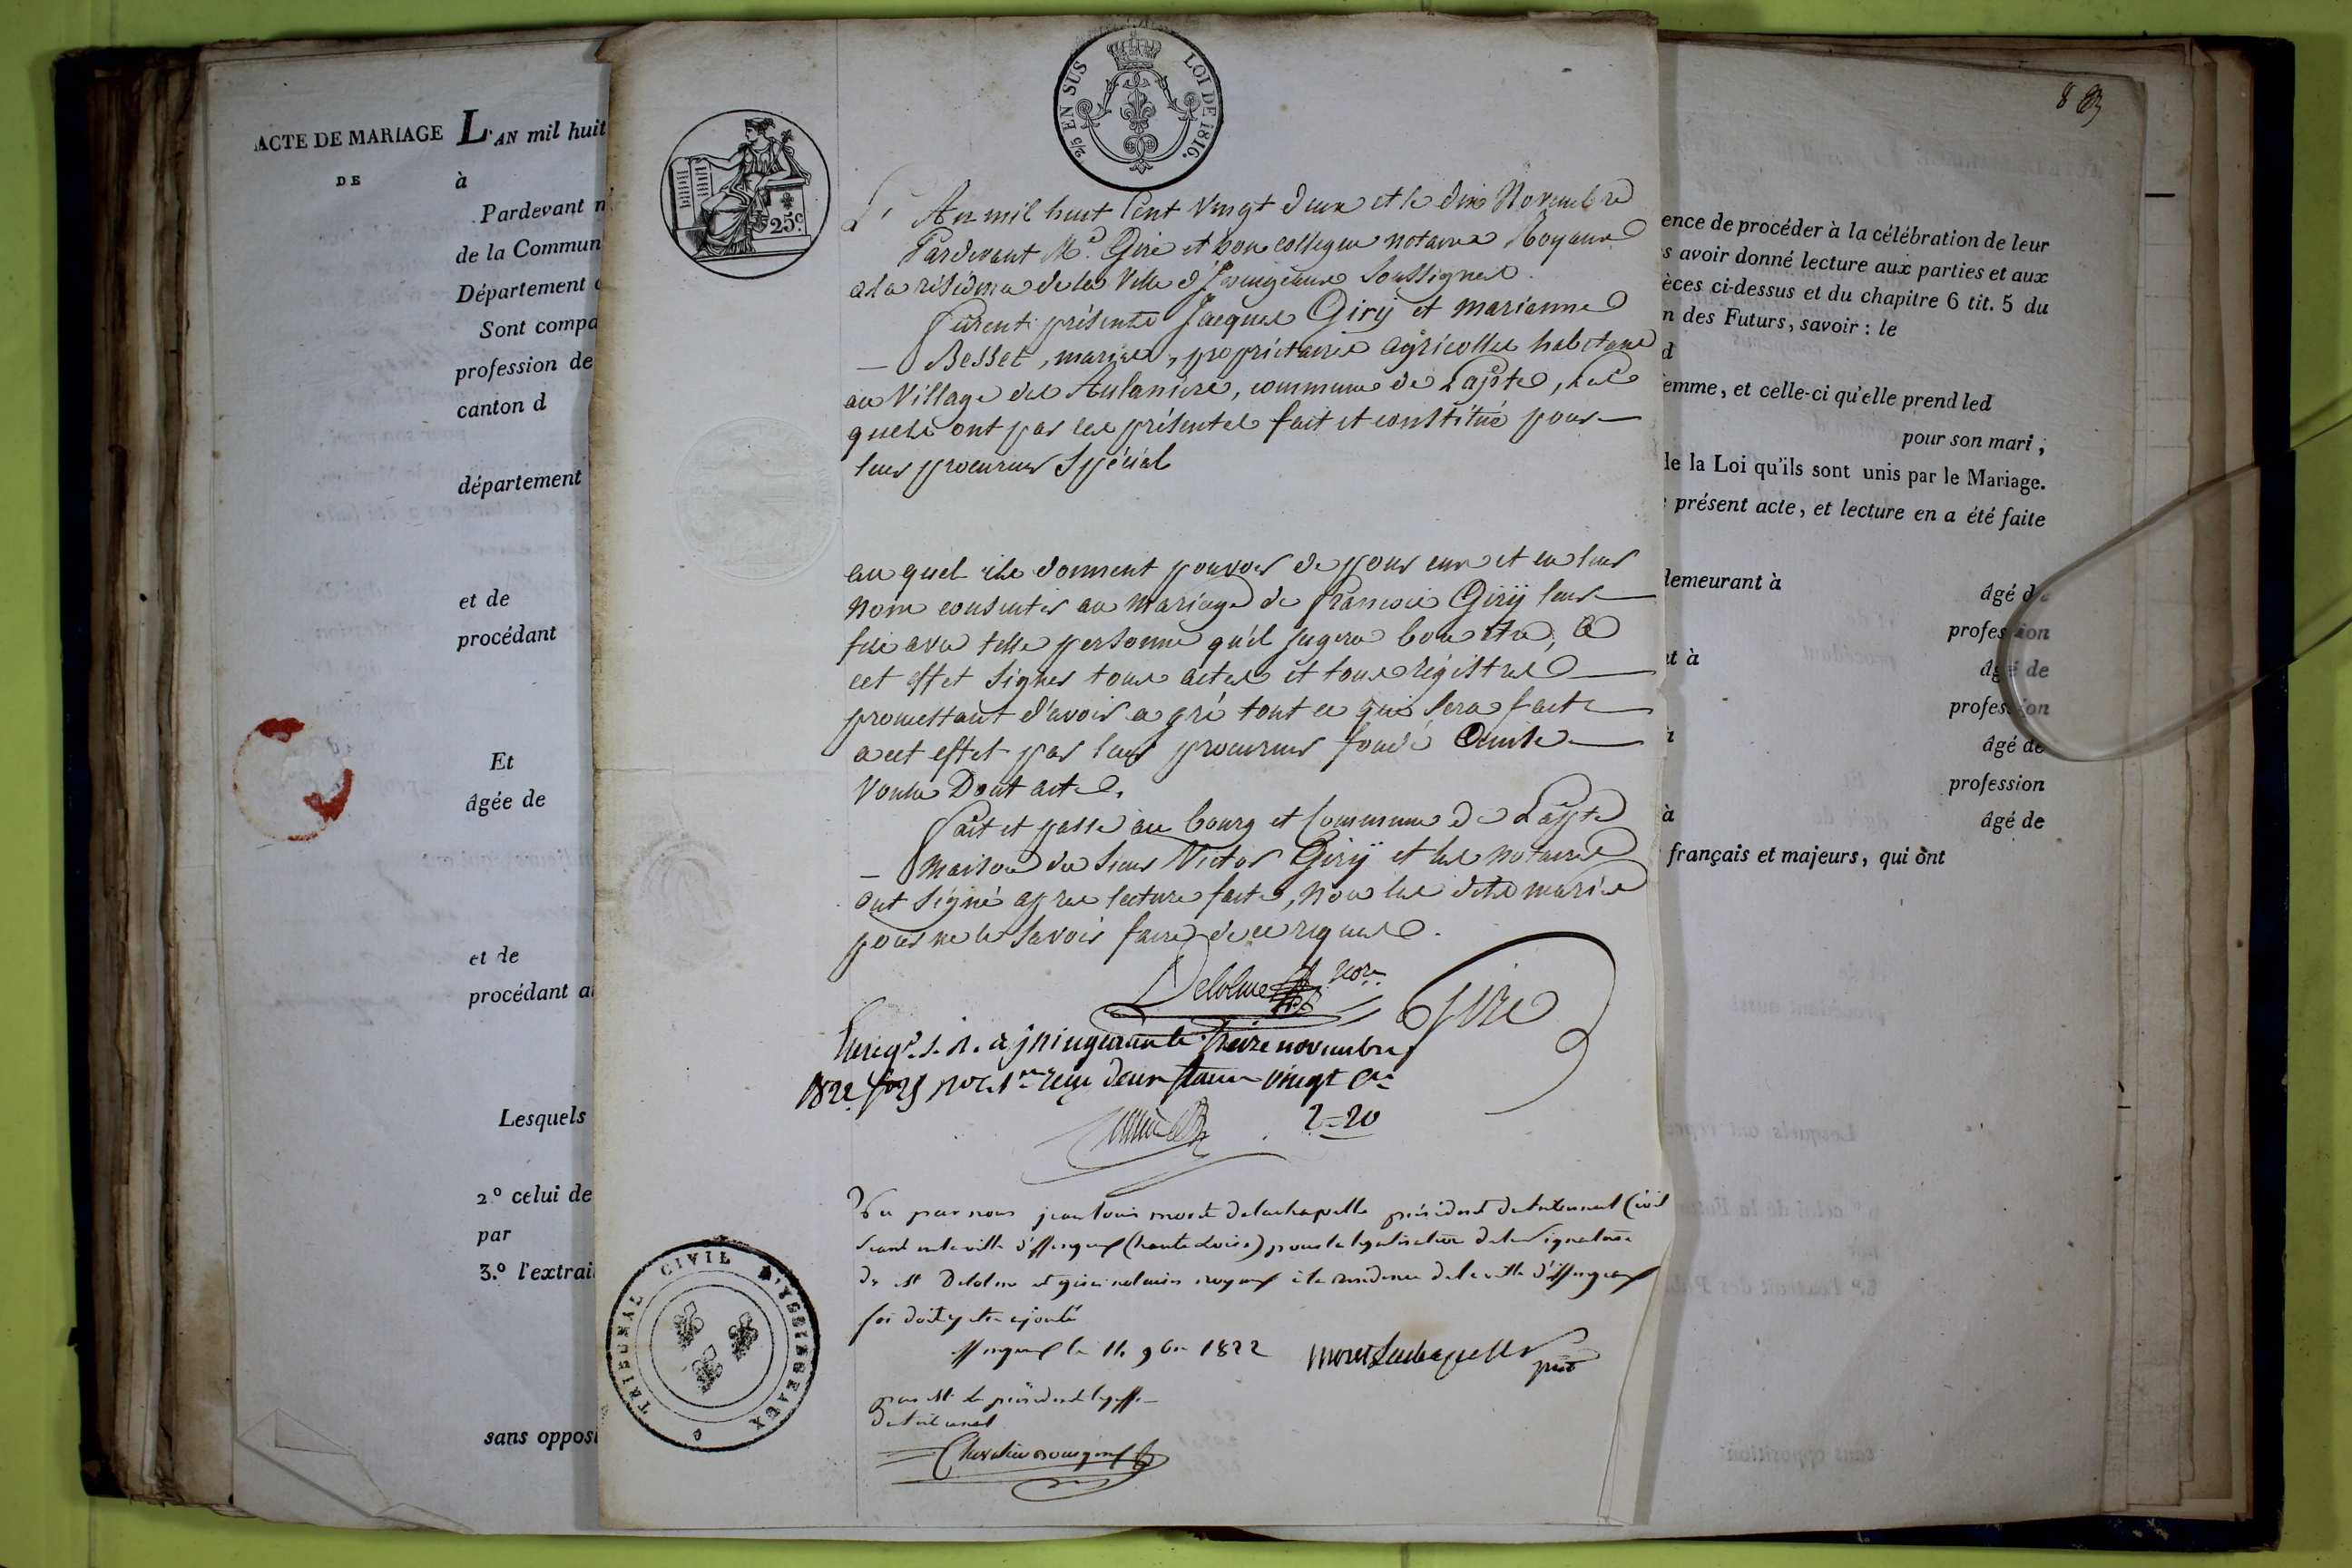 ACTE DE MARIAGE L'AN mil huit
DE à
Pardevant n
de la Commun
Département d
Sont compa
profession de
canton d
département
et de
procédant
Et
âgée de
et de
procédant a
Lesquels
2.º celui de
par
3.º l'extrai
sans opposi
2/5 EN SUS LOI DE 1816.
25c.
L'An mil huit Cent Vingt deux et le dix Novembre
Pardevant Me. Giré et son collegue notaires Royaux
a la résidence de la Ville d'Issingeaux Soussignés.
furent présents Jacques Giry et marianne
Besset, mariés, propriétaires agricolles habitans
au Village des Aulanières, commune de Lapte, Les
quels ont par les présentes fait et constitué pour
leur procureur Spécial
au quel ils donnent pouvoir de pour eux et en leur
nom consentir au mariage de francois Giry leur
fils avec telle personne qu'il jugera bon etre, a
cet effet signer tous actes et tous régistres
promettant d'avoir a gré tout ce qui sera fait
a cet effet par leur procureur fondé
Voulu Dont acte.
fait et passé au bourg et Commune de Lapte
maison du sieur Victor Giry et les notaires
ont signé apres lecture faite, non les dits mariés
pour ne le savoir faire de ce requis.
Delolme nore Giré
Enregé. à jssingeaux le treize novembre
1822 reçu deux francs vingt ces
2=20
Vu par nous jean louis moret delachapelle président du tribunal Civil
séant en la ville d'issingeaux (haute Loire) pour la légalisation de la signature
de Mr Delolme et giré notaires royaux à la résidence de la ville d'issingeaux
foi doit y etre ajoutée
issingeaux le 11. 9bre 1822 moret Lachapelle
prést
par Mr le président le greffier
du tribunal
TRIBUNAL CIVIL D'YSSINGEAUX
8
ence de procéder à la célébration de leur
s avoir donné lecture aux parties et aux
èces ci-dessus et du chapitre 6 tit. 5 du
n des Futurs, savoir : le
d
emme, et celle-ci qu'elle prend led
pour son mari ;
le la Loi qu'ils sont unis par le Mariage.
présent acte, et lecture en a été faite
demeurant à âgé de
profession
nt à âgé de
profession
à âgé de
profession
à âgé de
français et majeurs, qui ont